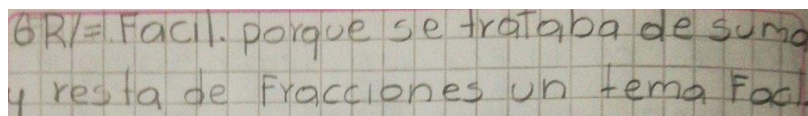 6R/= Facil. porque se trataba de suma
y resta de Fracciones un tema Facil.